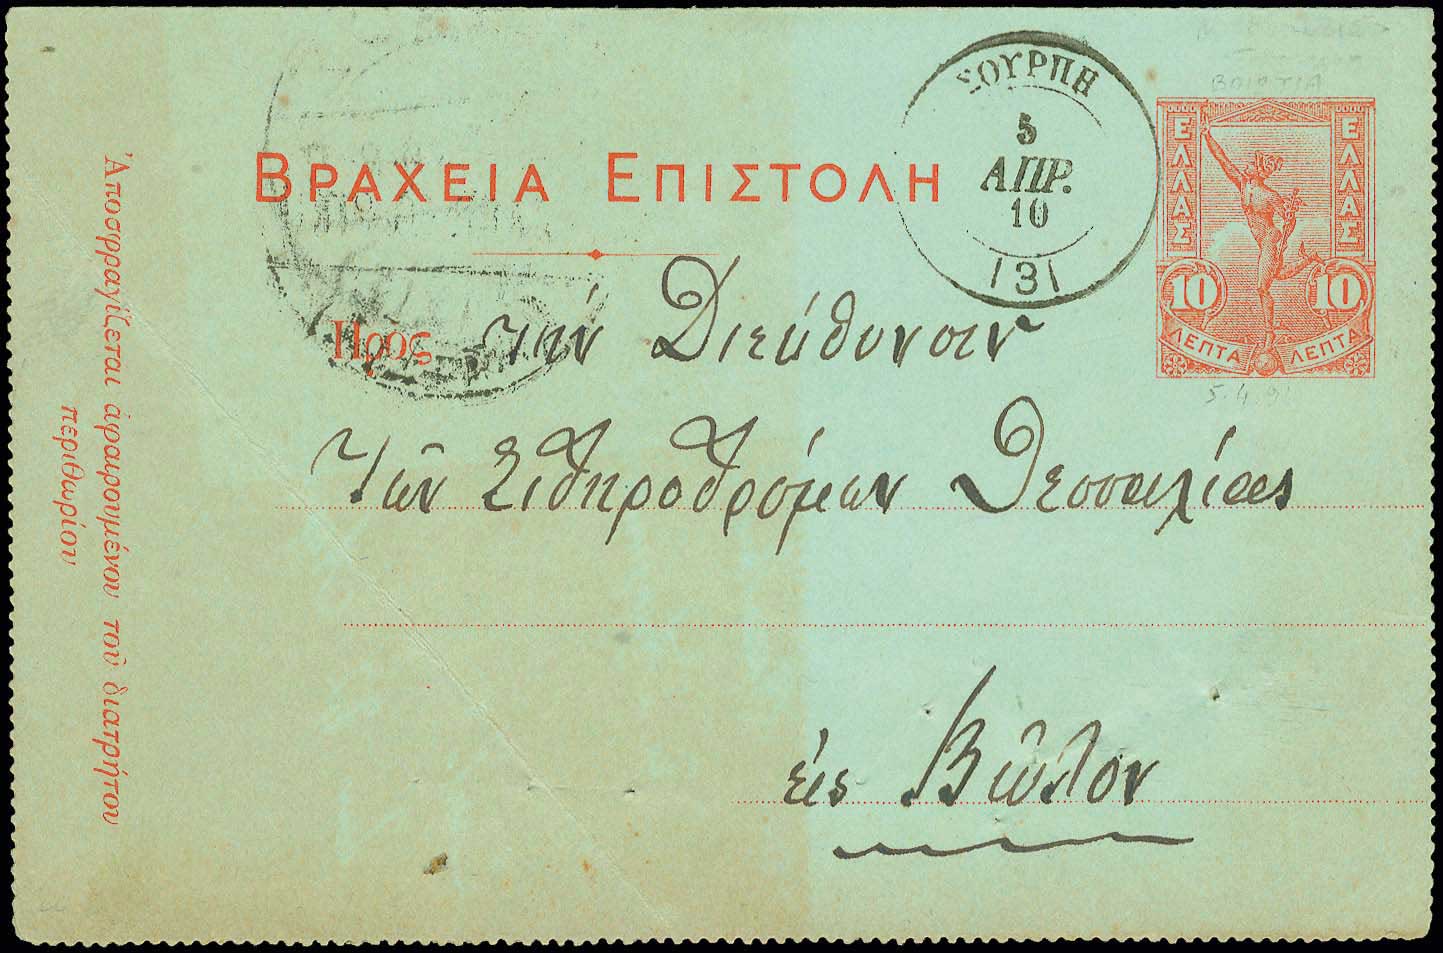 ΣΟΥΡΠΗ
5
ΑΠΡ.
10
131
ΒΟΙΩΤΙΑ
ΕΛΛΑΣ ΕΛΛΑΣ
10 10
ΛΕΠΤΑ ΛΕΠΤΑ
5.4.
ΒΡΑΧΕΙΑ ΕΠΙΣΤΟΛΗ
Πρὸς τὴν Διεύθυνσιν
τῶν Σιδηροδρόμων Θεσσαλίας
εἰς Βῶλον
Ἀποσφραγίζεται ἀφαιρουμένου τοῦ διατρήτου
περιθωρίου